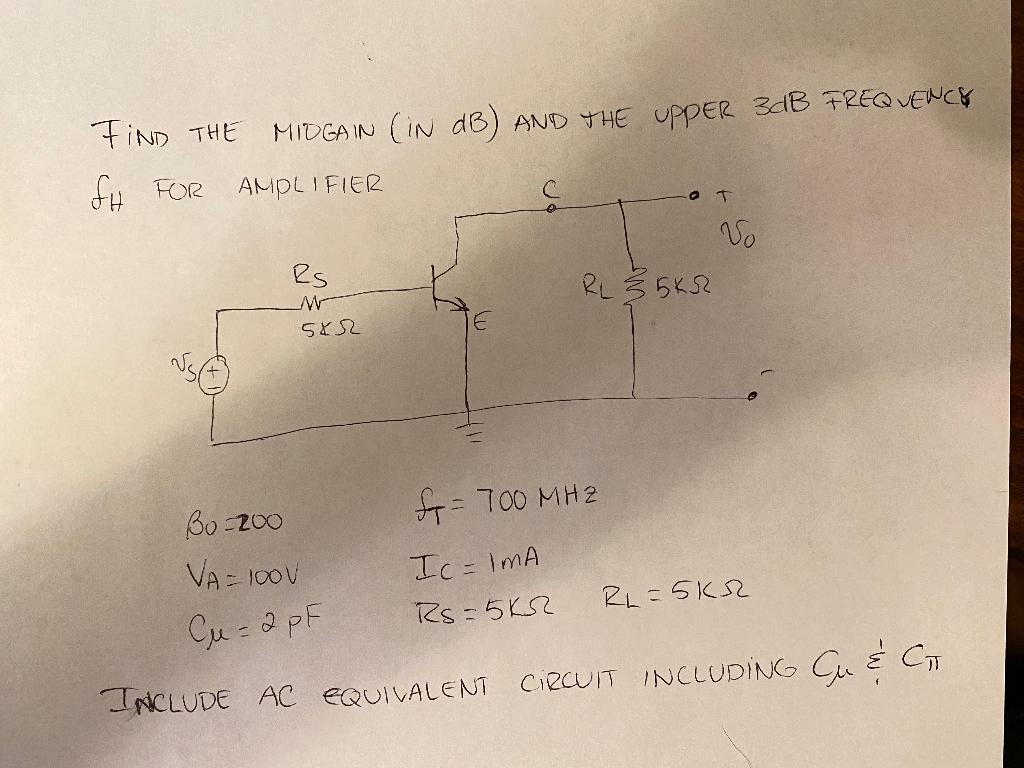 FIND THE MIDGAIN (IN dB) AND THE UPPER 3dB FREQUENCY
fH FOR AMPLIFIER
C
+
Vo
RS
RL 5KΩ
5KΩ
E
VS
+
-
-
βo=200 fT = 700 MHz
VA = 100V IC = 1mA
Cμ = 2 pF RS = 5KΩ RL = 5KΩ
INCLUDE AC EQUIVALENT CIRCUIT INCLUDING Cμ & Cπ